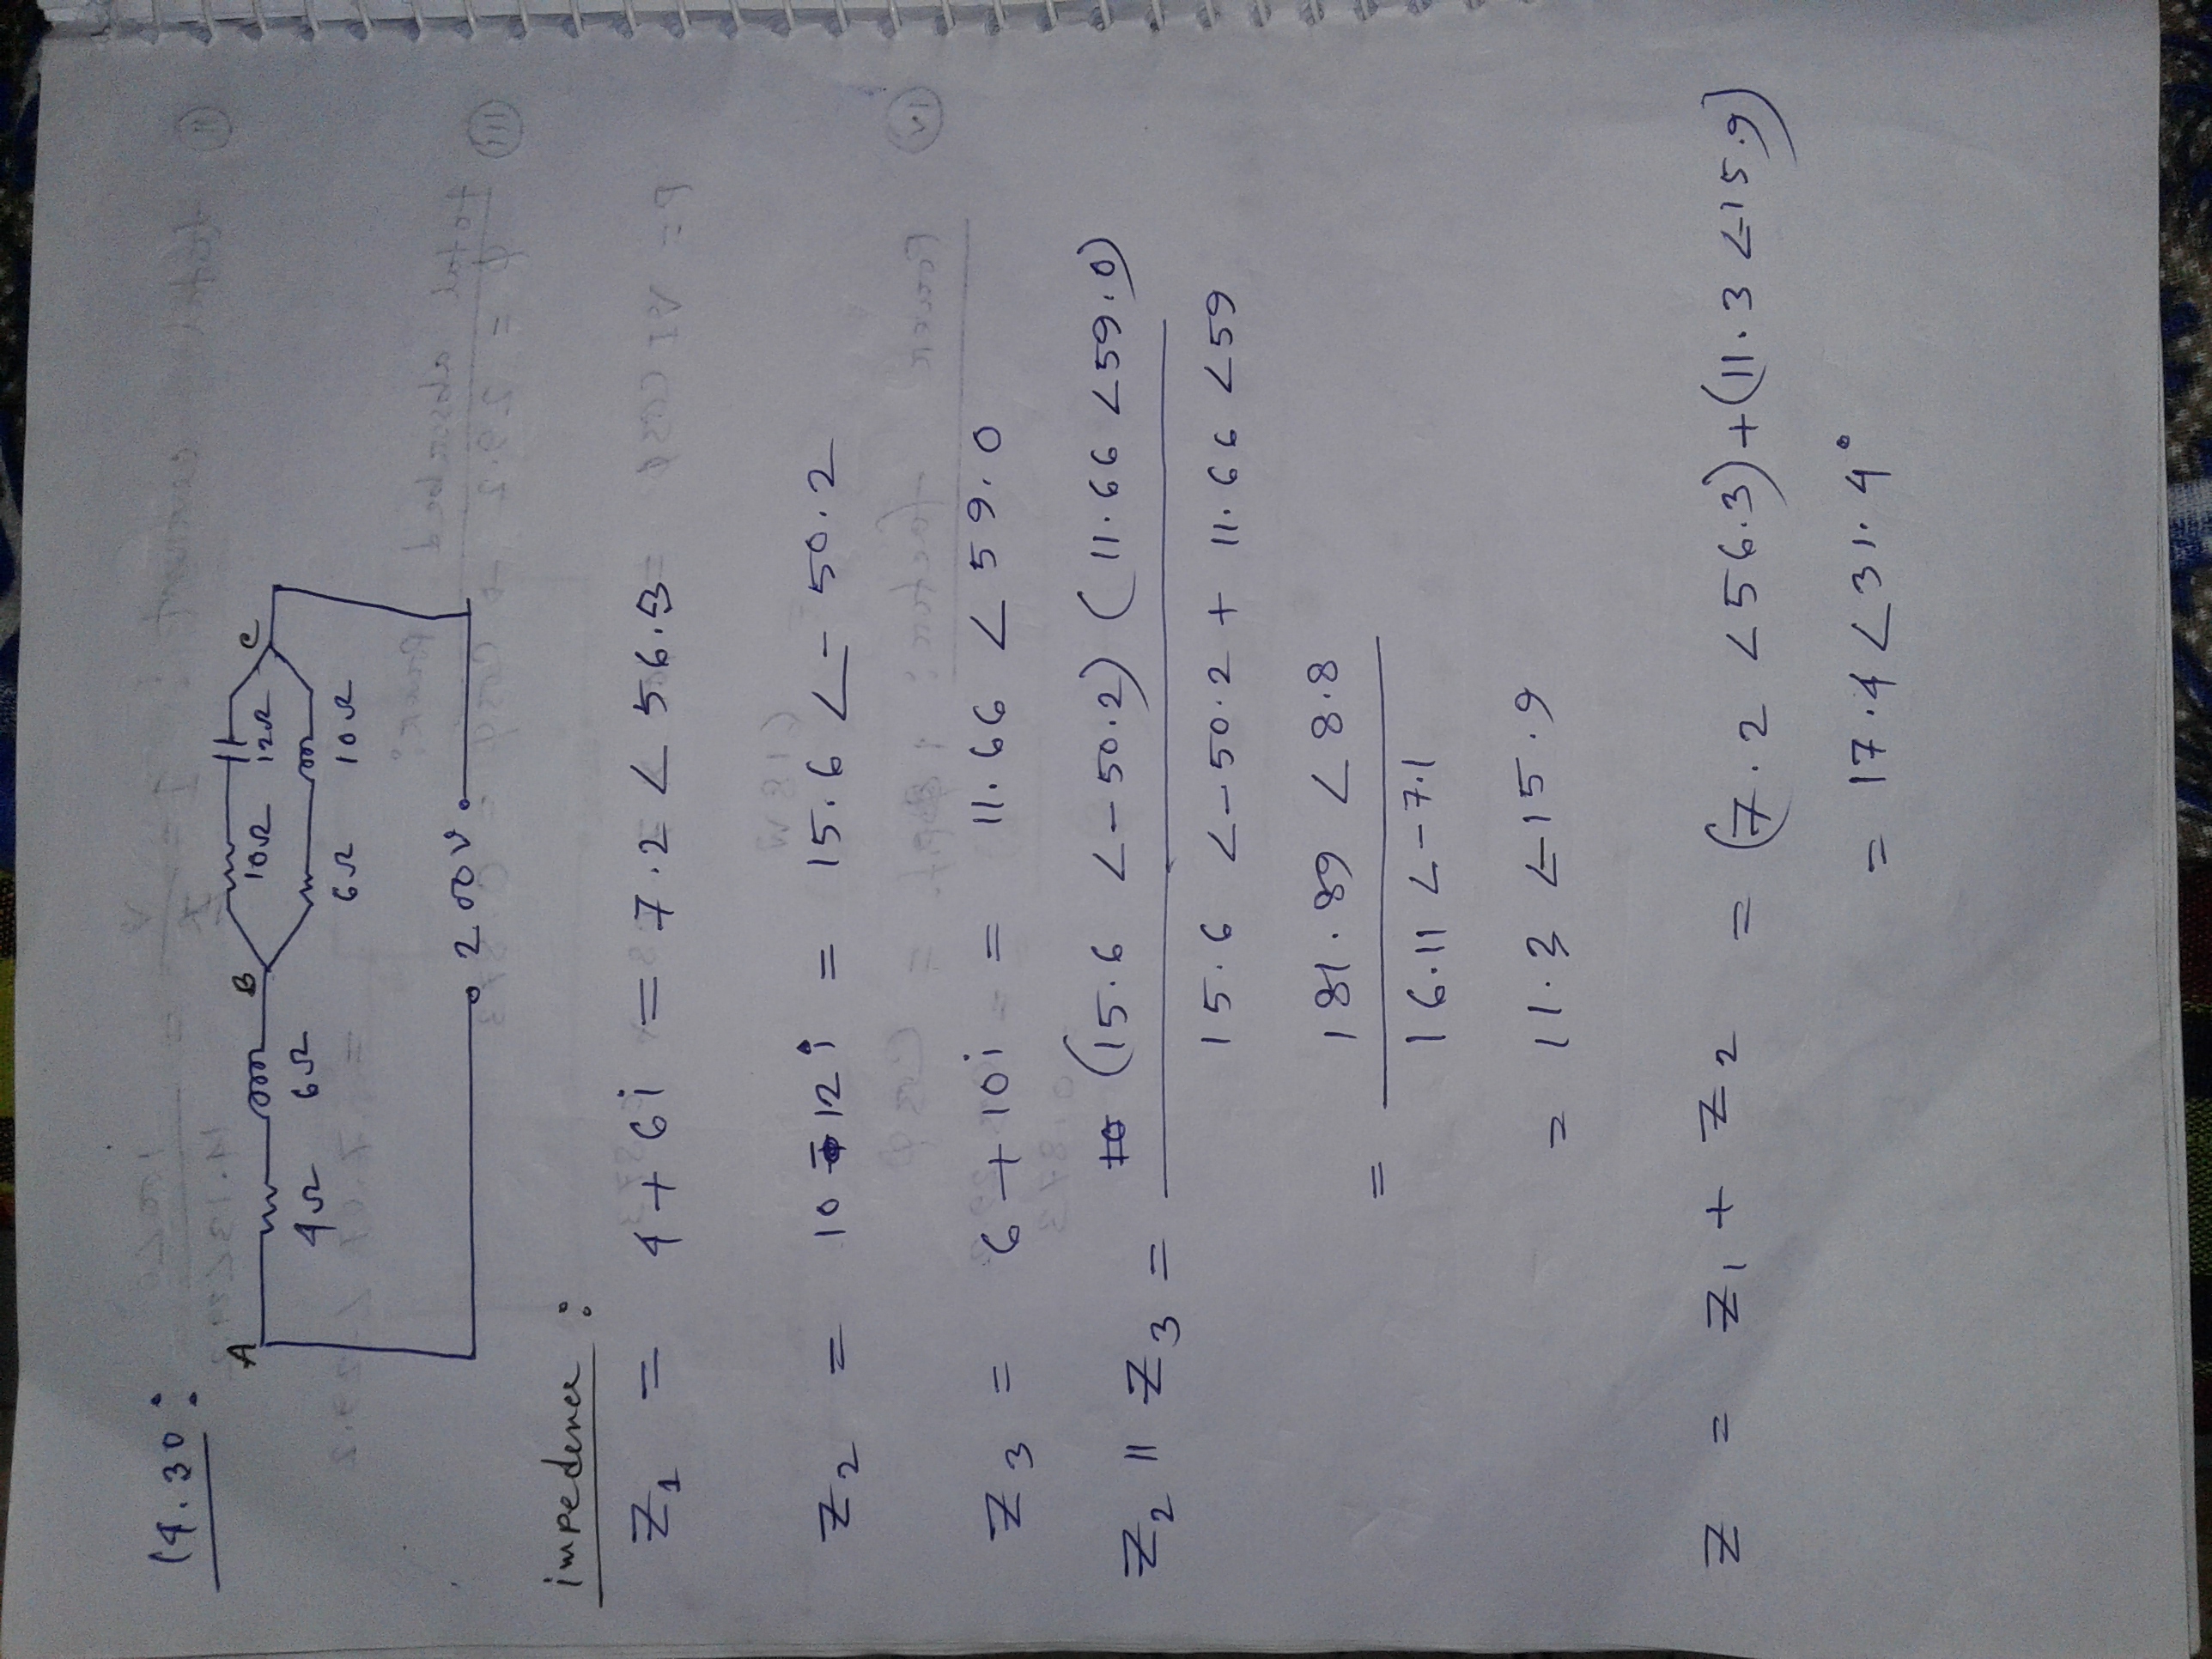 14.30:
A B C
10Ω 12Ω
4Ω 6Ω
6Ω 10Ω
200V
impedence :
Z1 = 4 + 6i = 7.2 ∠ 56.3
Z2 = 10 - 12i = 15.6 ∠- 50.2
Z3 = 6 + 10i = 11.66 ∠ 59.0
Z2 || Z3 = (15.6 ∠-50.2) (11.66 ∠59.0)
15.6 ∠-50.2 + 11.66 ∠59
= 181.89 ∠ 8.8
16.11 ∠-7.1
= 11.3 ∠15.9
Z = Z1 + Z2 = (7.2 ∠56.3)+(11.3 ∠15.9)
= 17.4 ∠31.4°